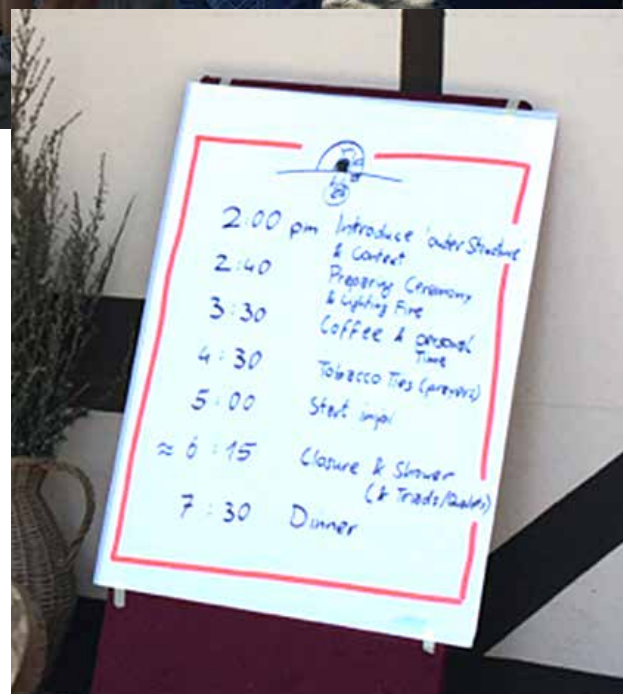 2:00 pm Introduce 'outer Structure'
& Context
2:40 Preparing Ceremony
& Lighting Fire
3:30 Coffee & personal
Time
4:30 Tobacco Ties (prayers)
5:00 Start inipi
≈ 6:15 Closure & Shower
(& Triads/
7:30 Dinner